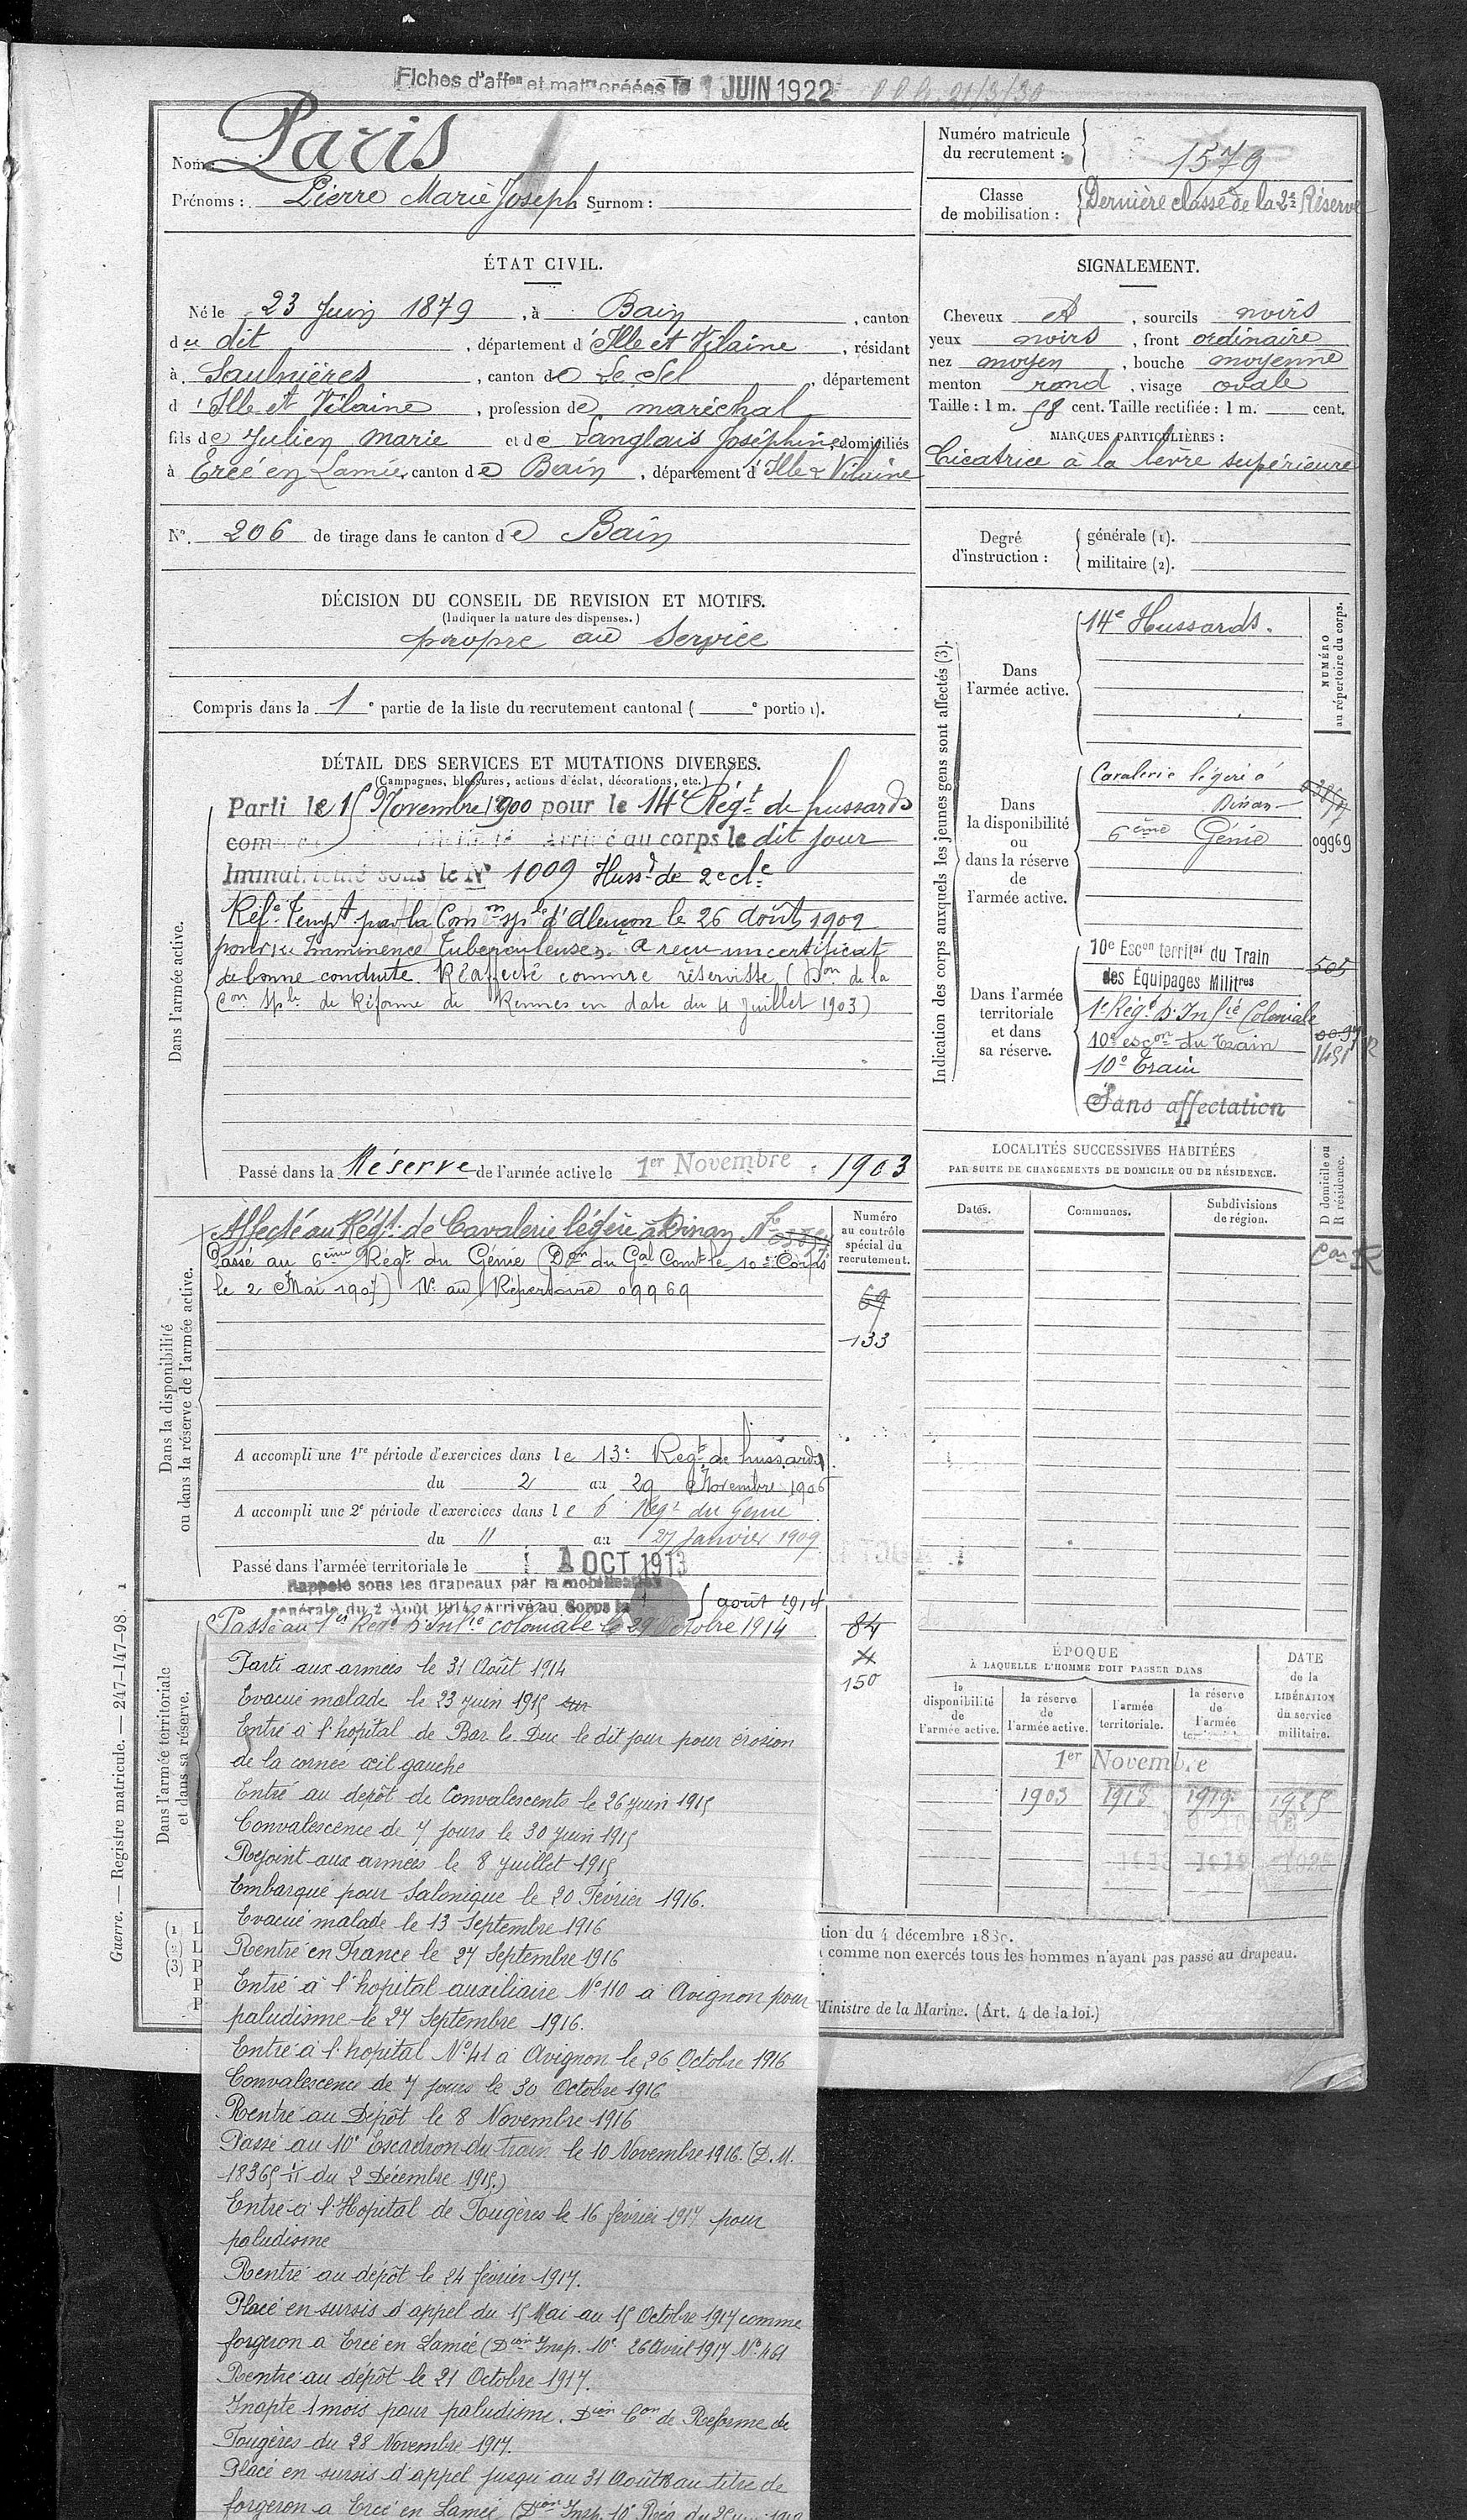 Fiches d'affon et matles créées le 1 JUIN 1922
Nom : Paris
Prénoms : Pierre Marie Joseph Surnom :
Numéro matricule
du recrutement : 1579
Classe
de mobilisation : Dernière classe de la 2e Réserve
ÉTAT CIVIL.
Né le 23 Juin 1879, à Bain, canton
du dit, département d'Ille et Vilaine, résidant
à Saulnières, canton de Le Sel, département
d'Ille et Vilaine, profession de maréchal
fils de Julien Marie et de Langlais Joséphine, domiciliés
à Ercé en Lamée, canton de Bain, département d'Ille & Vilaine
N° 206 de tirage dans le canton de Bain
SIGNALEMENT.
Cheveux et, sourcils noirs
yeux noirs, front ordinaire
nez moyen, bouche moyenne
menton rond, visage ovale
Taille : 1 m. 58 cent. Taille rectifiée : 1 m. cent.
MARQUES PARTICULIÈRES :
Cicatrice à la lèvre supérieure
Degré
d'instruction :
générale (1).
militaire (2).
DÉCISION DU CONSEIL DE REVISION ET MOTIFS.
(Indiquer la nature des dispenses.)
propre au service
Compris dans la 1e partie de la liste du recrutement cantonal ( e portion).
DÉTAIL DES SERVICES ET MUTATIONS DIVERSES.
(Campagnes, blessures, actions d'éclat, décorations, etc.)
Dans l'armée active.
Parti le 15 Novembre 1900 pour le 14e Régt de hussards
Arrivé au corps le dit jour
Immatriculé sous le N° 1009 Hussd de 2e cle
Réfé Tempt par la Comon sple d'Alençon le 26 Août 1902
pour : Imminence Tuberculeuse. A reçu un certificat
de bonne conduite. Réaffecté comme réserviste (Don de la
Con Sple de Réforme de Rennes en date du 4 Juillet 1903)
Passé dans la Réserve de l'armée active le 1er Novembre 1903
Indication des corps auxquels les jeunes gens sont affectés (3).
NUMÉRO
au répertoire du corps.
Dans
l'armée active.
14e Hussards.
Dans
la disponibilité
ou
dans la réserve
de
l'armée active.
Cavalerie légère à
Dinan
6ème Génie 09969
Dans l'armée
territoriale
et dans
sa réserve.
10e Escon territal du Train
des Équipages Militres 505
1er Régt d'Infie Coloniale
10e escon du Train
10e Train 1451
Sans affectation
Dans la disponibilité
ou dans la réserve de l'armée active.
Affecté au Régt de Cavalerie légère à Dinan
Passé au 6ème Régt du Génie (Don du Gal Comt le 10e Corps
le 2 Mai 1907) N° au Répertoire 09969
Numéro
au contrôle
spécial du
recrutement.
69
133
A accompli une 1re période d'exercices dans le 13e Régt de hussards
du 2 au 29 Novembre 1906
A accompli une 2e période d'exercices dans le 6e Régt du Génie
du 11 au 27 Janvier 1909
Passé dans l'armée territoriale le 1 OCT 1913
LOCALITÉS SUCCESSIVES HABITÉES
PAR SUITE DE CHANGEMENTS DE DOMICILE OU DE RÉSIDENCE.
Dates.
Communes.
Subdivisions
de région.
D domicile ou
R résidence.
Dans l'armée territoriale
et dans sa réserve.
Rappelé sous les drapeaux par la mobilisation
générale du 2 Août 1914. Arrivé au Corps le 5 août 1914
Passé au 1er Régt d'Infie coloniale le 29 Octobre 1914
84
150
Parti aux armées le 31 Août 1914
Evacué malade le 23 juin 1915
Entré à l'hôpital de Bar le Duc le dit jour pour érosion
de la cornée œil gauche
Entré au dépôt de Convalescents le 26 juin 1915
Convalescence de 7 jours le 30 juin 1915
Rejoint aux armées le 8 juillet 1915
Embarqué pour Salonique le 20 Février 1916.
Evacué malade le 13 Septembre 1916
Rentré en France le 27 Septembre 1916
Entré à l'hôpital auxiliaire N° 110 à Avignon pour
paludisme le 27 Septembre 1916.
Entré à l'hôpital N° 41 à Avignon le 26 Octobre 1916
Convalescence de 7 jours le 30 Octobre 1916
Rentré au Dépôt le 8 Novembre 1916
Passé au 10e Escadron du train le 10 Novembre 1916. (D.M.
18365 du 2 Décembre 1915.)
Entré à l'Hôpital de Fougères le 16 février 1917 pour
paludisme
Rentré au dépôt le 24 février 1917.
Placé en sursis d'appel du 15 Mai au 15 Octobre 1917 comme
forgeron à Ercé en Lamée (Dion Insp. 10e 26 Avril 1917 N° 461
Rentré au dépôt le 21 Octobre 1917.
Inapte 1 mois pour paludisme. Dion Con de Réforme de
Fougères du 28 Novembre 1917.
Placé en sursis d'appel jusqu'au 31 Août au titre de
forgeron à Ercé en Lamée
ÉPOQUE
À LAQUELLE L'HOMME DOIT PASSER DANS
la
disponibilité
de
l'armée active.
la réserve
de
l'armée active.
l'armée
territoriale.
la réserve
de
l'armée
DATE
de la
LIBÉRATION
du service
militaire.
1er Novembre
1903 1913 1919 1925
tion du 4 décembre 1889.
comme non exercés tous les hommes n'ayant pas passé au drapeau.
Ministre de la Marine. (Art. 4 de la loi.)
Guerre. — Registre matricule. — 247-147-98.